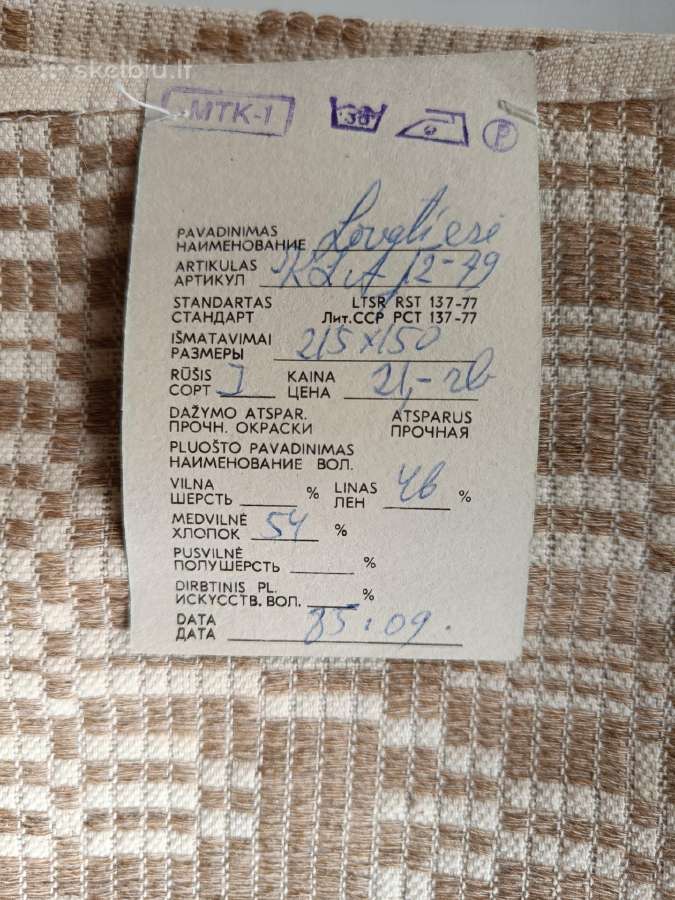 skelbiu.lt
MTK-1 30 P
PAVADINIMAS
НАИМЕНОВАНИЕ Lovatiesė
ARTIKULAS
АРТИКУЛ 12-79
STANDARTAS LTSR RST 137-77
СТАНДАРТ Лит.ССР РСТ 137-77
IŠMATAVIMAI
РАЗМЕРЫ 215x150
RŪŠIS KAINA
СОРТ I ЦЕНА 21,- rb
DAŽYMO ATSPAR. ATSPARUS
ПРОЧН. ОКРАСКИ ПРОЧНАЯ
PLUOŠTO PAVADINIMAS
НАИМЕНОВАНИЕ ВОЛ.
VILNA % LINAS 46 %
ШЕРСТЬ ЛЕН
MEDVILNĖ
ХЛОПОК 54 %
PUSVILNĖ
ПОЛУШЕРСТЬ %
DIRBTINIS PL.
ИСКУССТВ. ВОЛ. %
DATA
ДАТА 85.09.